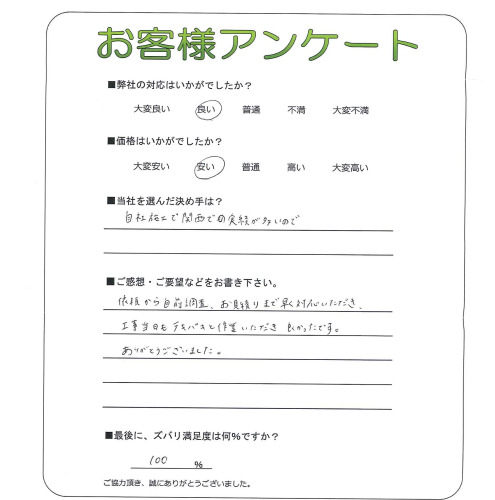 お客様アンケート
■弊社の対応はいかがでしたか?
大変良い 良い 普通 不満 大変不満
■価格はいかがでしたか?
大変安い 安い 普通 高い 大変高い
■当社を選んだ決め手は?
自社施工で関西での実績が多いので
■ご感想・ご要望などをお書き下さい。
依頼から事前調査、お見積りまで早く対応いただき、
工事当日もテキパキと作業いただき良かったです。
ありがとうございました。
■最後に、ズバリ満足度は何%ですか?
100 %
ご協力頂き、誠にありがとうございました。